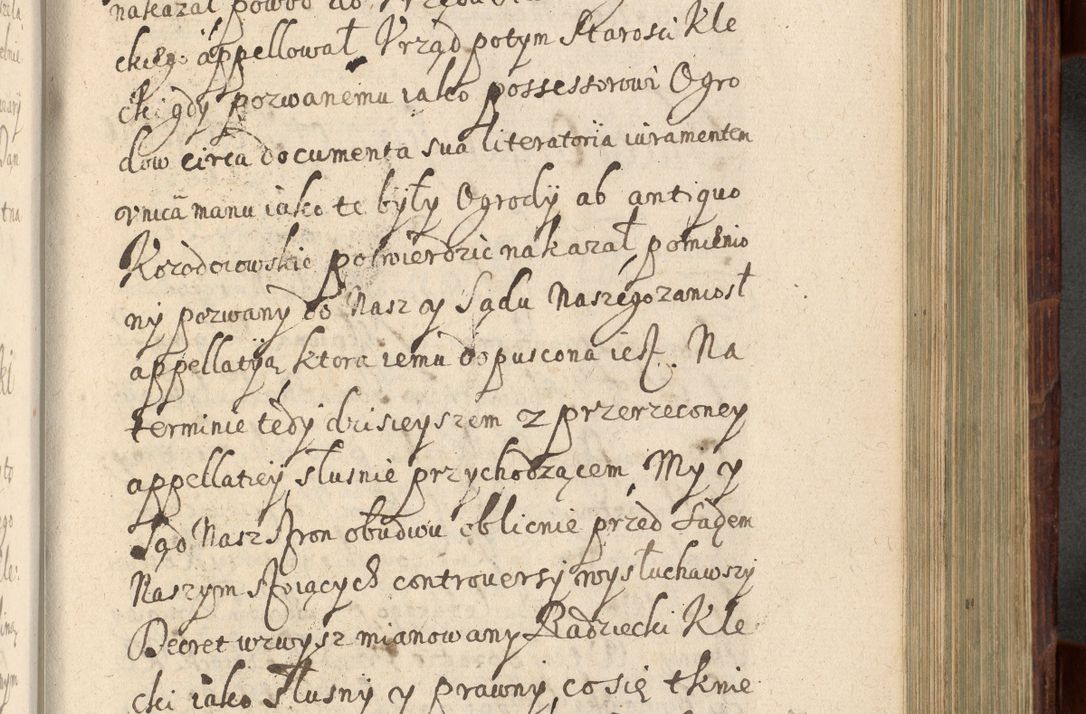 nakazał powod do Vrzędu
ckiego áppellował, Vrząd potym Starosci Kle
cki gdy pozwanemu iako possessorowi Ogro
dow circa documenta sua literatoria iuramentem
vnica manu iako te były Ogrody ab antiquo
potwierdzic nakazał, pomienio
ny pozwany do Nasz y Sądu Naszego zaniosł
appellatyą ktora iemu dopuscona iest. Na
terminie tedy dzisieyszem z przerzeconey
appellatiey słusnie przychodzącem, My y
Sąd Nasz Stron obudwu oblicnie przed Sądem
Naszym stoiących controversy wysłuchawszy
Decret wzwysz mianowany Radziecki Kle
cki iako słusny y prawny, co się tknie